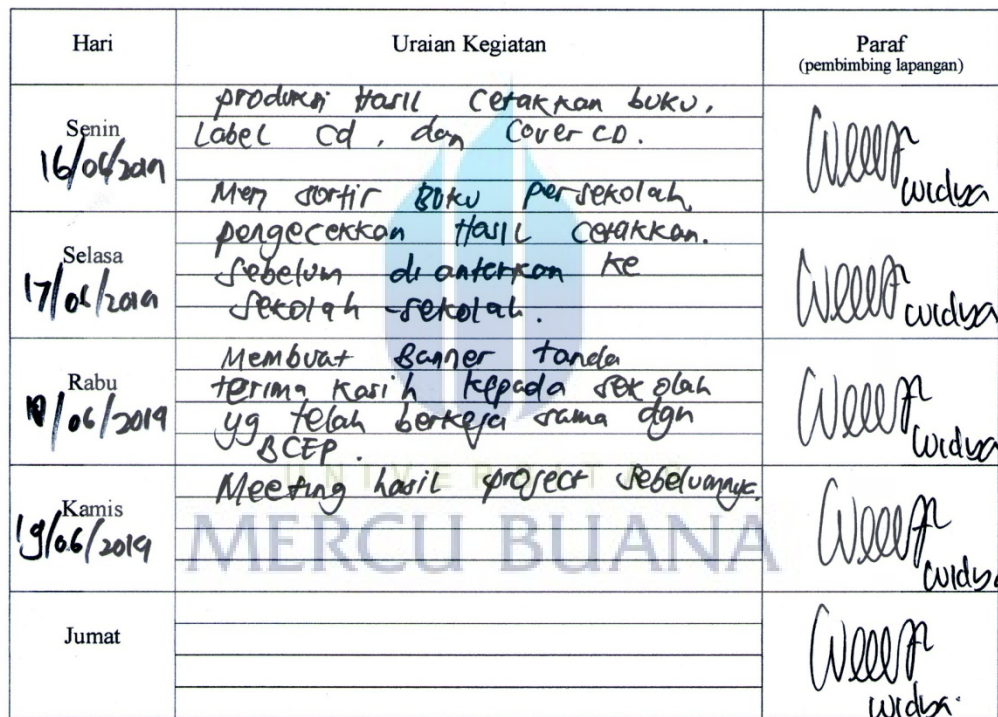 Hari Uraian Kegiatan Paraf
(pembimbing lapangan)
Senin
16/06/2019
produksi Hasil Cetakkan buku,
Label cd, dan Cover CD.
Men sortir Buku persekolah
widya
Selasa
17/06/2019
pengecekkan Hasil Cetakkan.
sebelum di anterkan ke
sekolah-sekolah.
widya
Rabu
/06/2019
Membuat Banner tanda
terima kasih kepada sekolah
yg telah berkeja sama dgn
BCEP.
widya
Kamis
19/06/2019
Meeting hasil project sebelumnya.
widya
Jumat
widya
UNIVERSITAS
MERCU BUANA